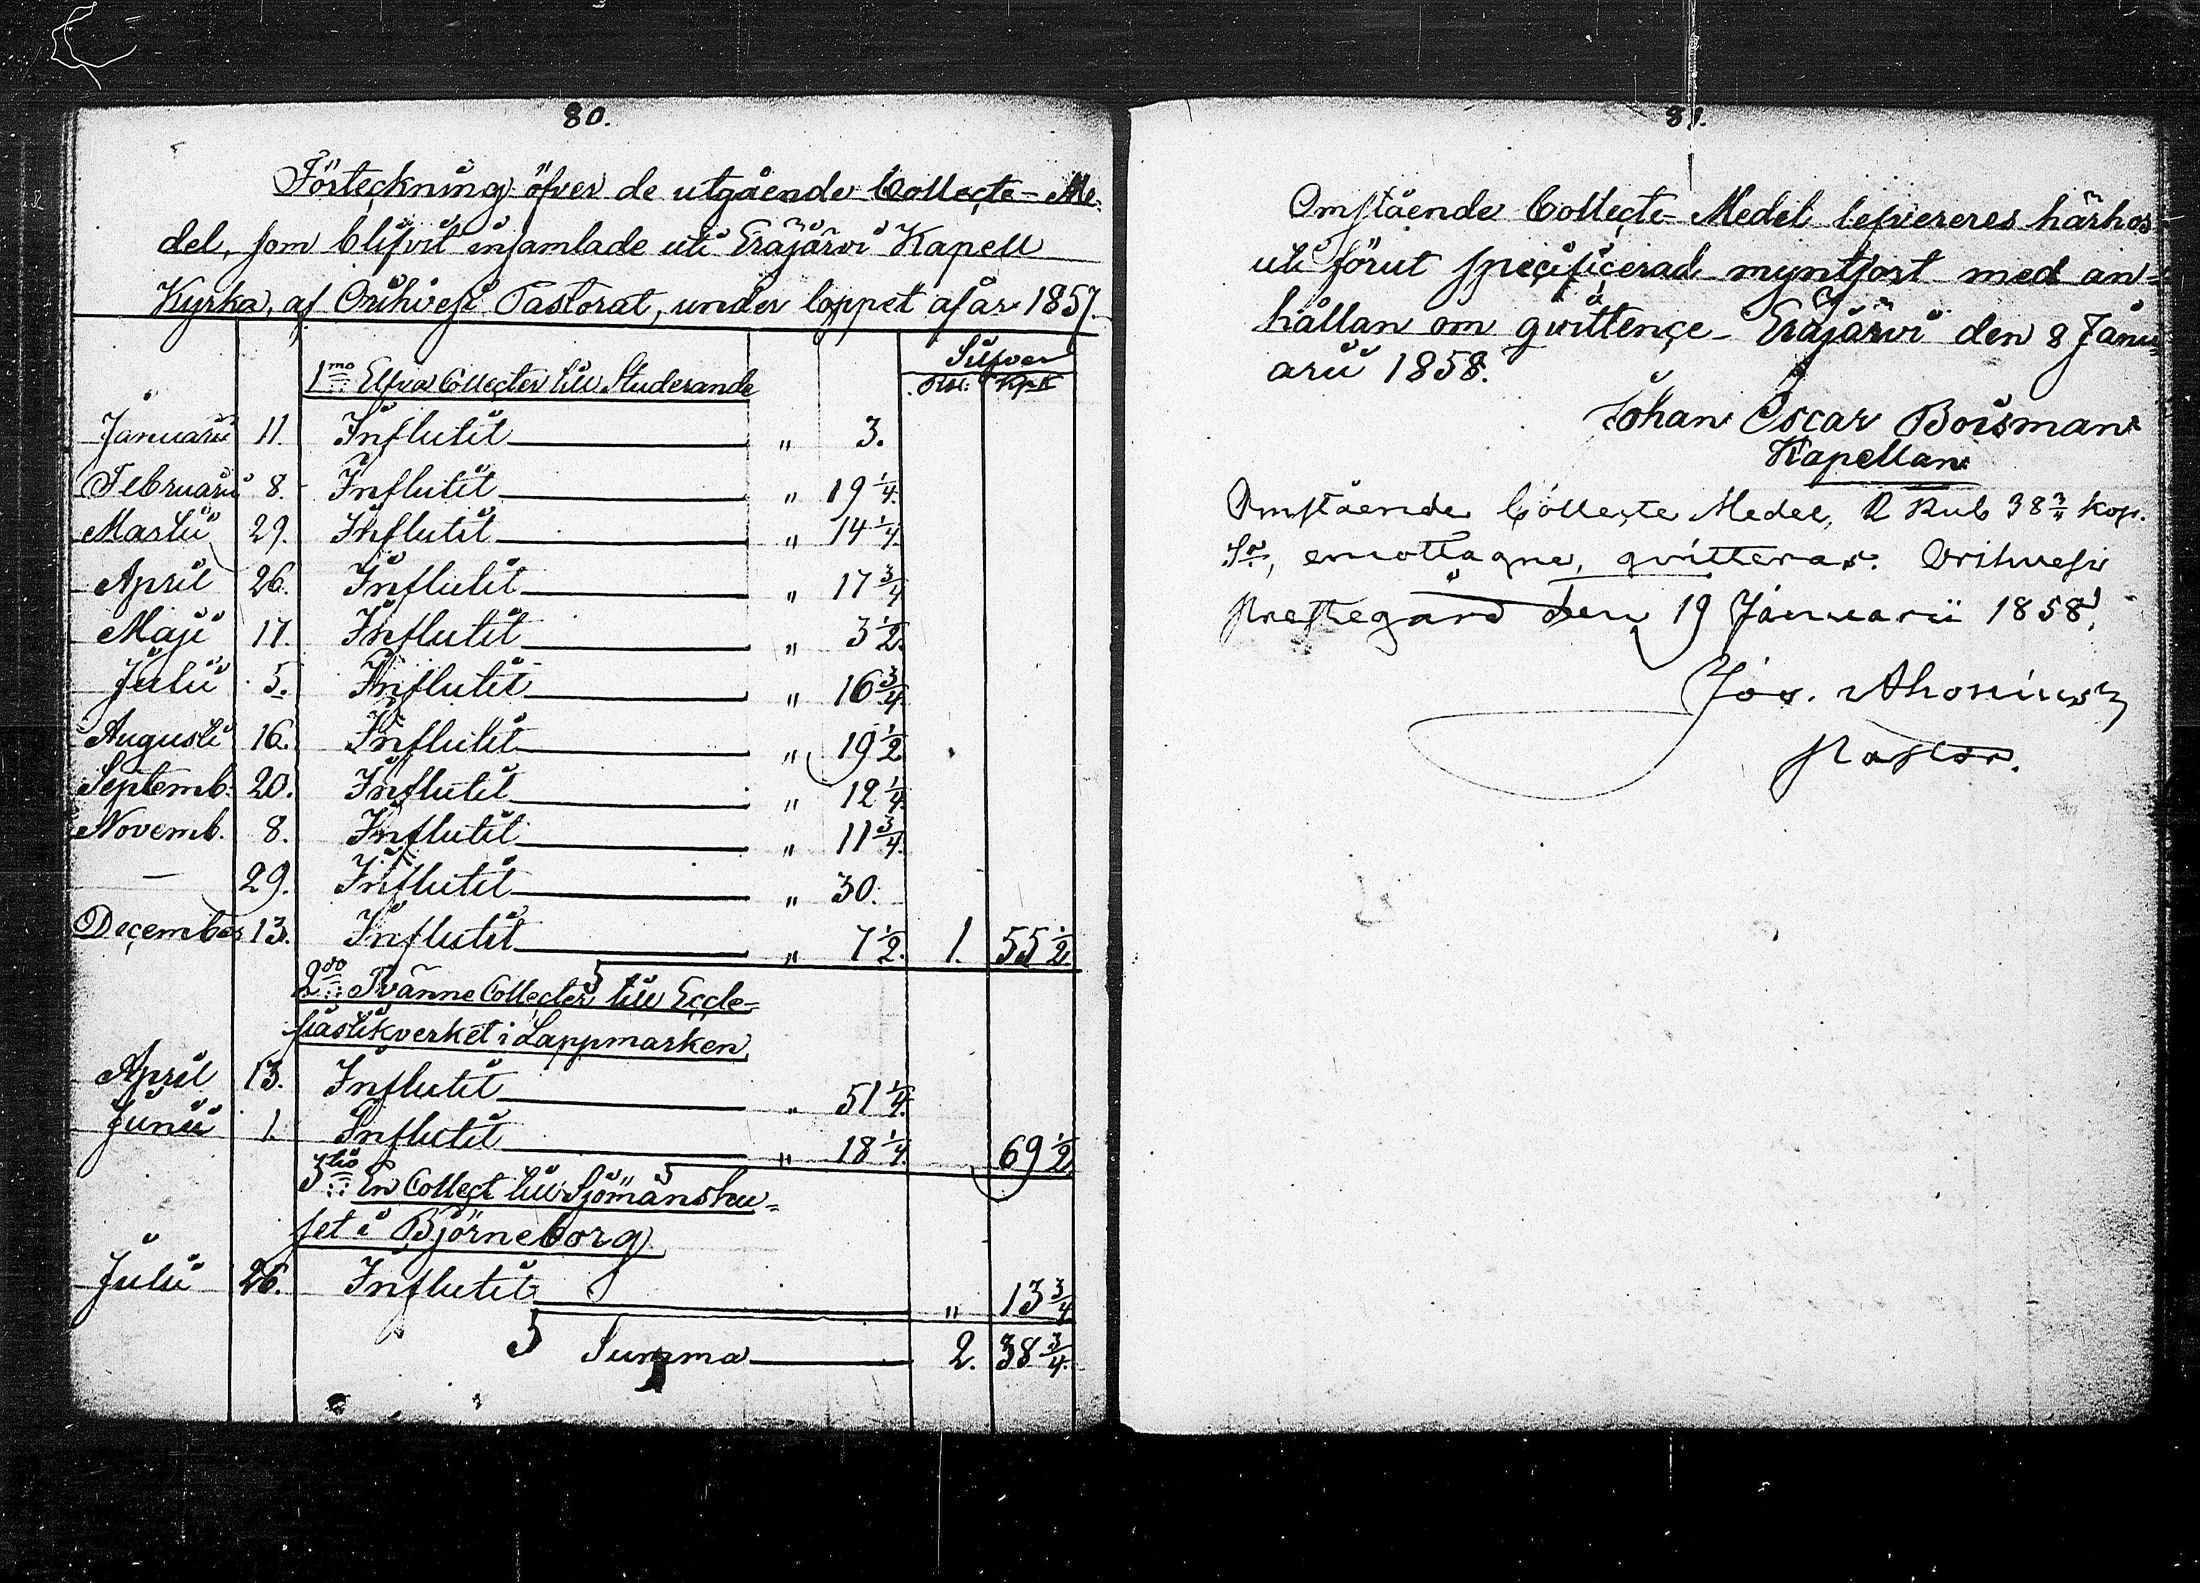 80.
Förteckning öfver de utgående Collecte-Me-
del, som blifvit insamlade uti Eräjärvi Kapell
Kyrka, af Orihvesi Pastorat, under loppet af år 1857.
Silfver
1mo Elfva Collecter till Studerande Rbl. Kpk
Januarii 11. Influtit " 3.
Februarii 8. Influtit " 19 1/4.
Martii 29. Influtit " 14 1/4
April 26. Influtit " 17 3/4
Maji 17. Influtit " 3 1/2.
Julii 5. Influtit " 16 3/4.
Augusti 16. Influtit " 19 1/2
Septemb. 20. Influtit " 12 1/4.
Novemb. 8. Influtit " 11 3/4.
— 29. Influtit " 30.
December 13. Influtit " 7 1/2. 1. 55 1/2.
2do Tvänne Collecter till Eccle=
siastikverket i Lappmarken
April 13. Influtit " 51 1/4.
Junii 1. Influtit " 18 1/4. 69 1/2
3tio En Collect till Sjömanshu=
set i Björneborg
Julii 26. Influtit " 13 3/4
Summa 2. 38 3/4.
81.
Omstående Collecte-Medel lefvereres härhos
uti förut specificerad myntsort med an=
hållan om qvittence. Eräjärvi den 8 Janu=
arii 1858.
Johan Oscar Boisman
Kapellan
Omstående Collecte Medel, 2 Rub 38 3/4 kop.
Sr, emottagne, qvitteras. Orihvesi
Prestegård den 19 Januarii 1858.
Jos. Ahonius
Pastor.